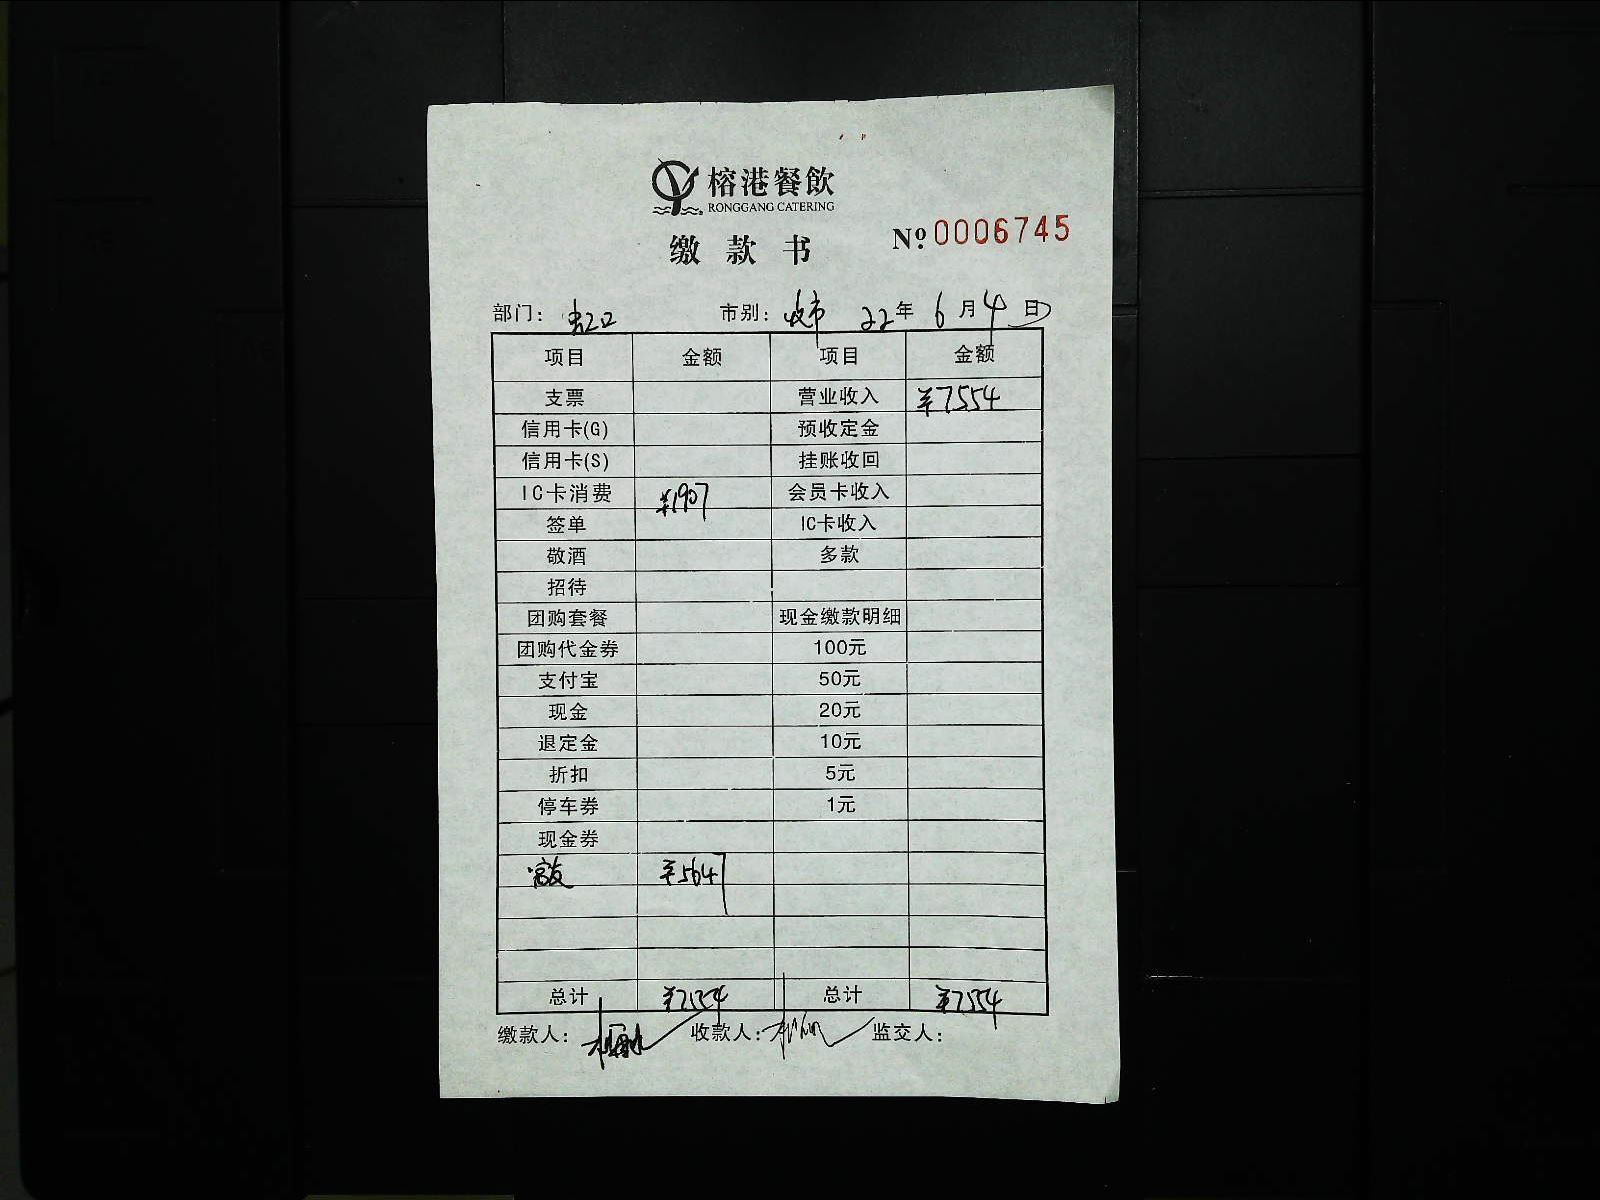 榕港餐飲
RONGGANG CATERING
缴款书 Nº 0006745
部门: 虹口 市别: 夜市 22年 6月 4日
项目 金额 项目 金额
支票 营业收入 ¥7554
信用卡(G) 预收定金
信用卡(S) 挂账收回
IC卡消费 ¥1907 会员卡收入
签单 IC卡收入
敬酒 多款
招待
团购套餐 现金缴款明细
团购代金券 100元
支付宝 50元
现金 20元
退定金 10元
折扣 5元
停车券 1元
现金券
¥5647
总计 ¥7554 总计 ¥7554
缴款人: 收款人: 监交人: